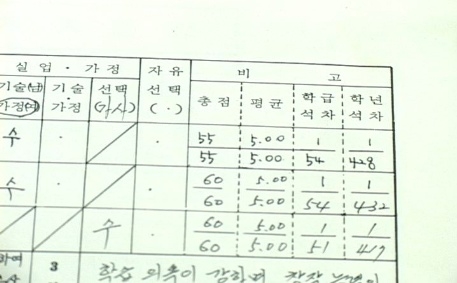 실업·가정 자유 비 고
기술(남) 기술 선택 선택 총점 평균 학급 학년
가정(여) 가정 (가사) (·) 석차 석차
수 · · 55 5.00 1 1
55 5.00 54 428
수 · · 60 5.00 1 1
60 5.00 54 432
수 · 60 5.00 1 1
60 5.00 51 419
3 학습 의욕이 강하며